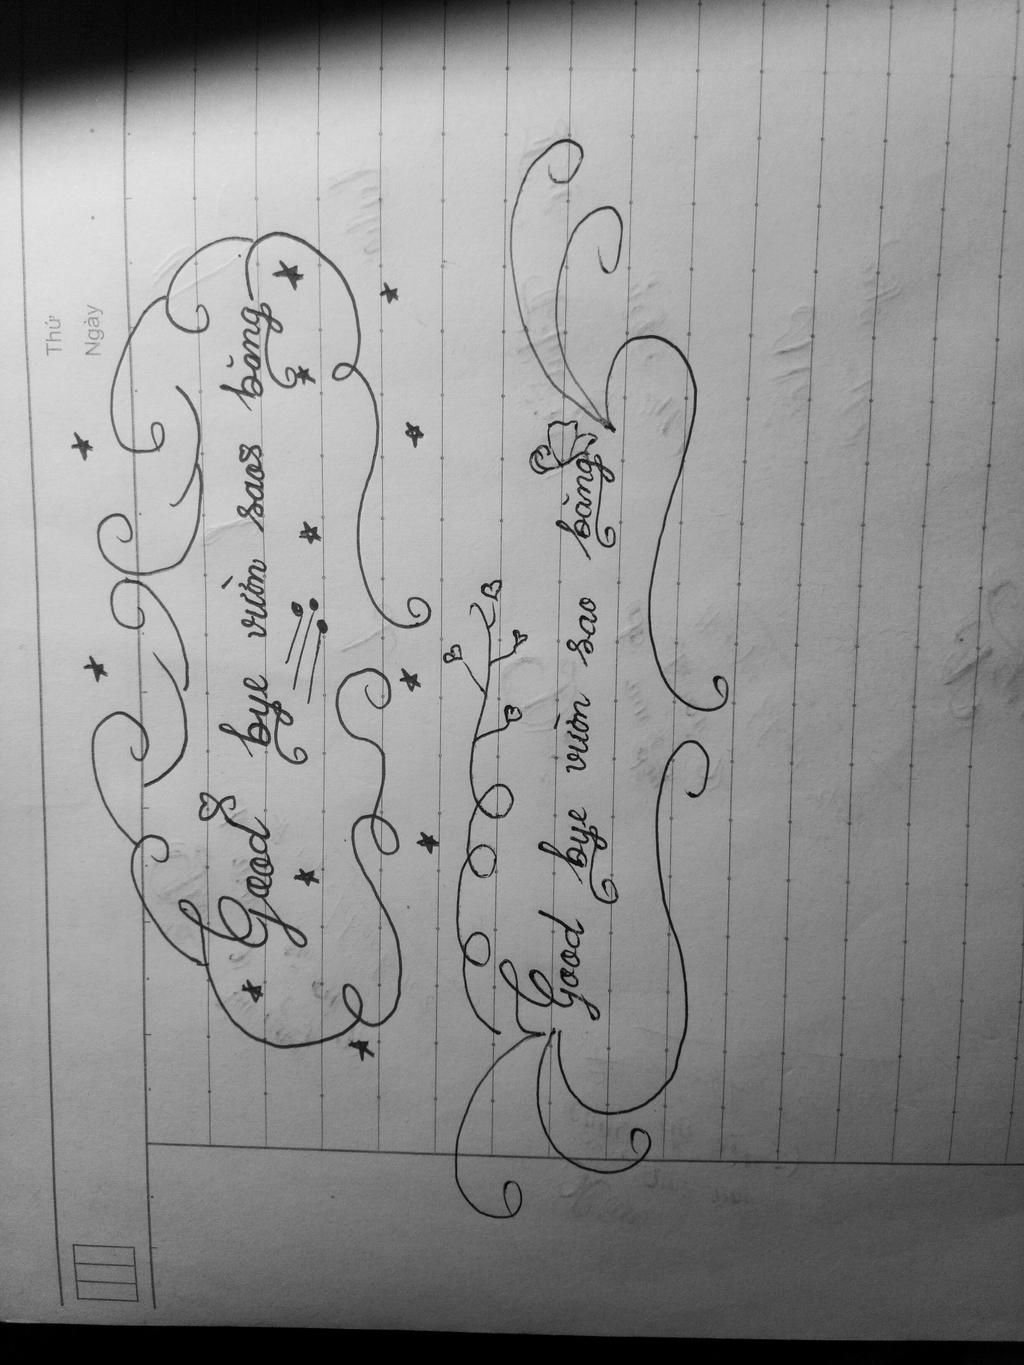 Thứ
Ngày
Good bye vườn saos băng
Good bye vườn sao băng